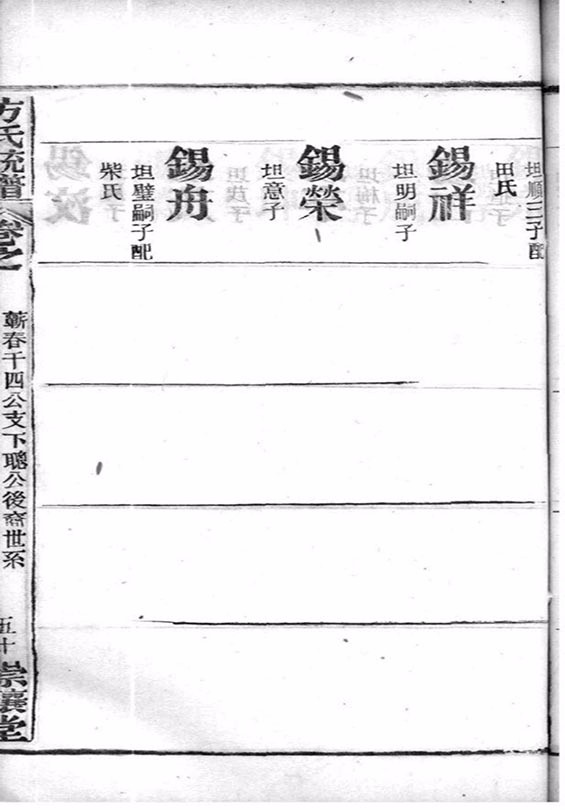 坦順三子配
田氏
錫祥
坦明嗣子
錫榮
坦意子
錫舟
坦璧嗣子配
柴氏
方氏統譜 卷之一
蘄春千四公支下聰公後裔世系
五十
崇讓堂